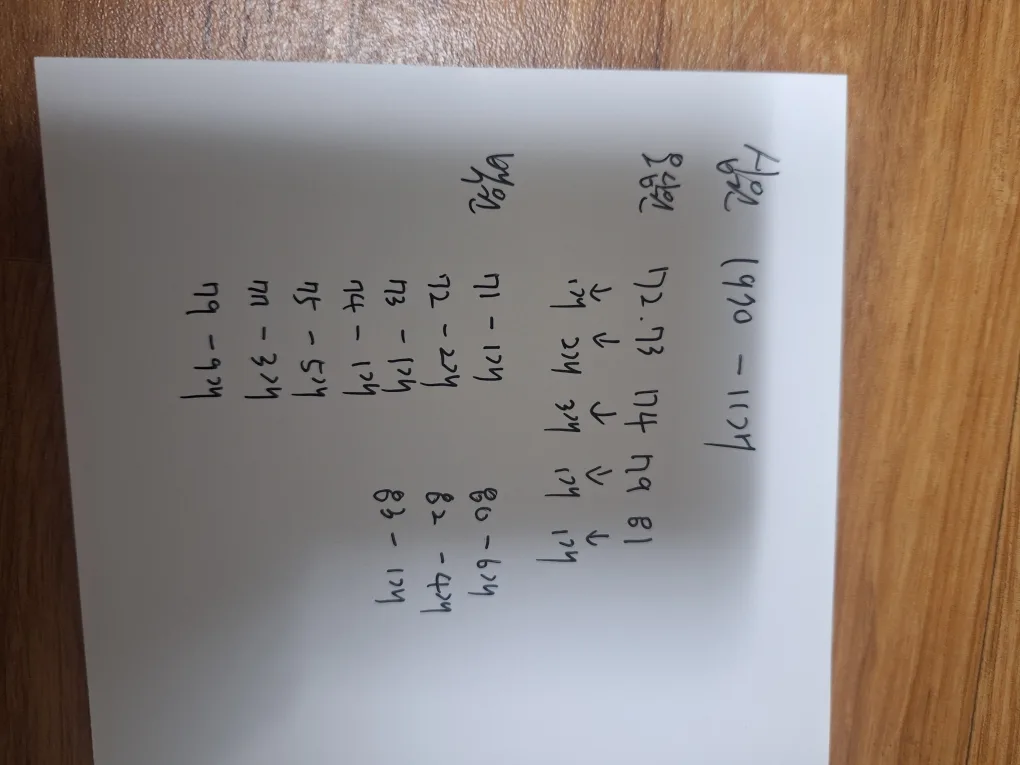 십원 1970 - 11개
오십원 72. 73 74 79 81
↓ ↓ ↓ ↓ ↓
1개 2개 3개 1개 1개
백원 71 - 1개 80 - 6개
72 - 2개 82 - 4개
73 - 1개 83 - 1개
74 - 1개
75 - 5개
77 - 3개
79 - 9개